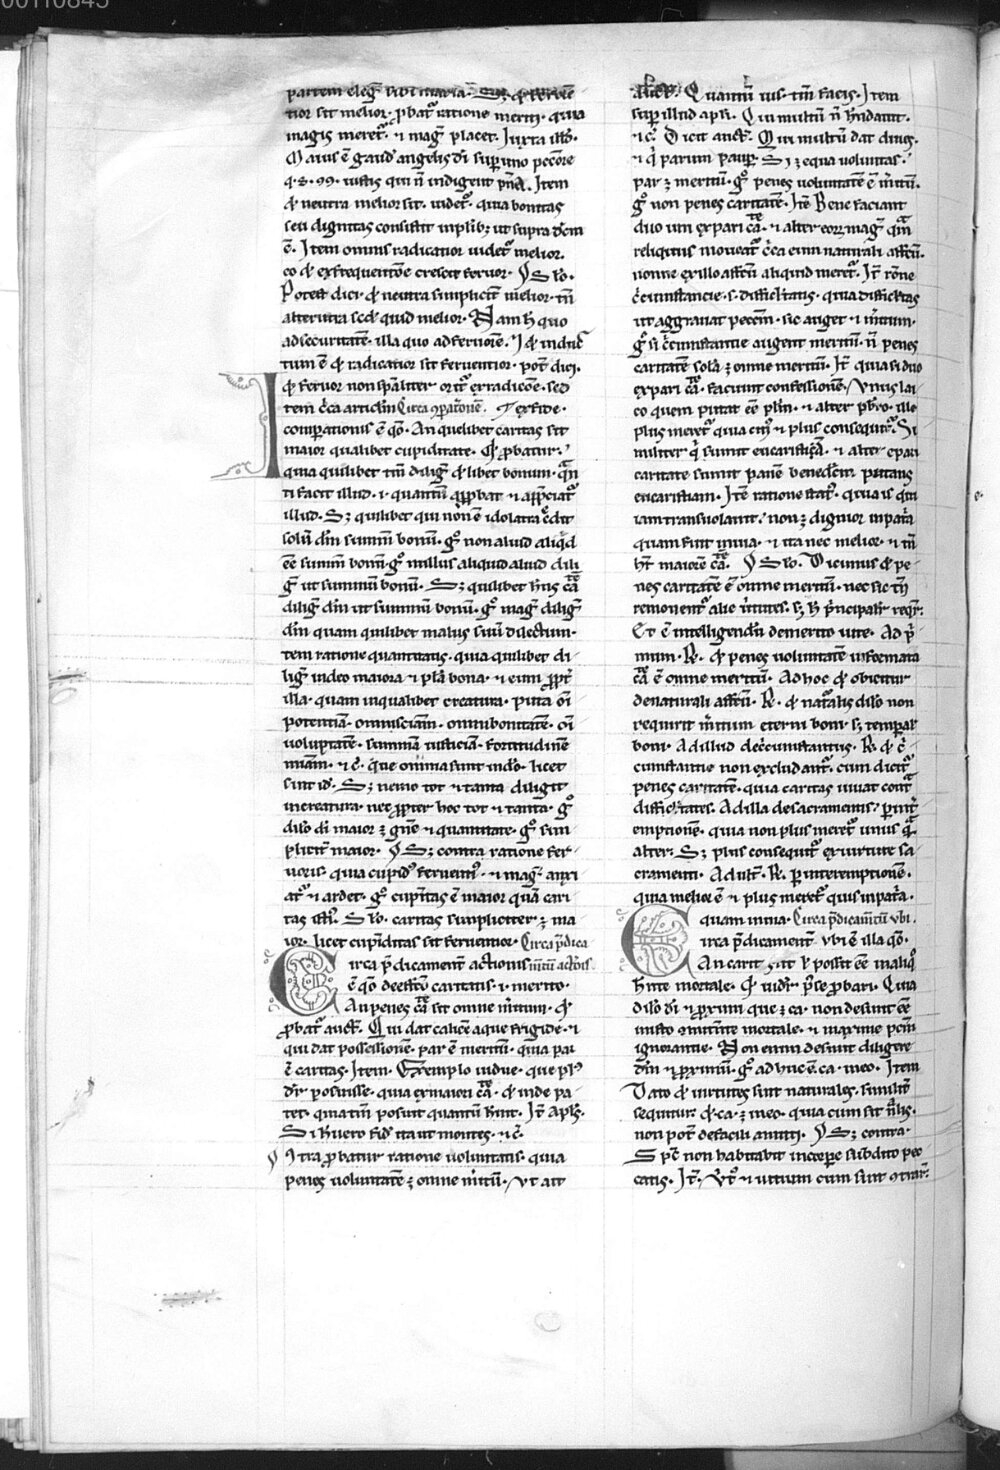 00110845
partem eleg̃ sibi maria.
tior sit melior. ꝓbat᷑ ratione meriti. quia
magis meret᷑. ⁊ mag̃ placet. Iuxta illđ.
Maius ē gaud' angelis dī sup uno pecc̄ore
q̃. s. 99. iustis qui ñ indigent pñā. Item
ꝙ neutra melior sit. uidet᷑. quia bonitas
seu dignitas consistit inplib; ut supra dc̄m
ē. Item omnis radicatior uidet᷑ melior.
eo ꝙ exfrequentōne crescit feruor. Solō.
Potest dici. ꝙ neutra simplicit̃ melior. tñ
alterutra scd' quid melior. Nam h̄ quo
adsecuritatē. illa quo adferuorē.
tum ē ꝙ radicatior sit feruentior. pot̃ dici.
ꝙ feruor non sp̄aliter orit᷑ exradicōe. sed
Item c̄ca articl̄m Circa ꝯparōnē. exfide.
comparationis ē qō. An quelibet caritas sit
maior qualibet cupiditate. Q ꝓbatur.
quia quilibet tm̄ dilig̃ ꝙlibet bonum. qñ
ti facit illud. i. quantū apꝓbat ⁊ app̄ciat᷑
illud. S; quilibet qui non ē idolatra c̄dit
solū dñm summū bonū. g̊ non aliud aliqͥd
eē summ̄ bonū. g̊ nullus aliquid aliud dili
g̃ ut summū bonū. S; quilibet hñs cāē
dilig̃ dñm ut summū bonū. g̊ mag̃ dilig̃
dñm quam quilibet malus suū dilectum.
tem ratione quantitatis. quia quilibet di
lig̃ indeo maiora ⁊ plā bona. ⁊ eum ꝓpt̃
illa. quam inqualibet creatura. puta oī
potentiā. omnisciam. omnibonitatē. oī
uoluptatē. summā iusticiā. fortitudinē
miam. ⁊ c̃. que omnia sunt indō. licet
sint id. S; nemo tot ⁊ tanta diligit
increatura. nec ꝓpter hoc tot ⁊ tanta. g̊
dilō dī maior ꝫ gñe ⁊ quantitate. g̊ sim
plicit̃ maior. S; contra ratione fer
uoris. quia cupid' feruenti'. ⁊ mag̃ anxi
at᷑ ⁊ ardet. g̊ cup̃itas ē maior quā cari
tas isti'. Solō. caritas simpliciter ꝫ ma
ior. licet cupiditas sit feruentior. Circa p̄dica
irca p̄dicament̄ actionis mtū actōis.
ē qō deeffectu caritatis. i. merito.
An penes cāē sit omne mitum. ꝙ
ꝓbat᷑ auct̃. Qui dat calicē aque frigide. ⁊
qui dat possessionē. par ē meritū. quia par
ē caritas. Item. Exemplo uidue. que pl'
dr̄ posuisse. quia exmaiori cāē. ꝙ inde pa
tet. quia tm̄ posuit quantū hūit. It̃ Aplꝰ.
Si h̄uero fidē ita ut montes. ⁊ c̃.
ꝯtra ꝓbatur ratione uoluntatis. quia
penes uoluntatē ꝫ omne mitū. Vt ait
Quantū uis. tm̄ facis. Item
sup illud apl̄i. Qui multū ñ hñdauit.
⁊ c̃. Dicit auct̃. Qui multū dat diues.
⁊ q̄ parum paup. S; ꝫ equa uoluntas.
par ꝫ meritū. g̊ penes uoluntatē ē mitū.
g̊ non penes caritatē. Itē Bene faciant
duo uiri expari cāē. ⁊ alter eorꝫ mag̃ qm̄
reliquus moueat᷑ c̄ca eum naturali affc̄u.
nonne exillo affc̄u aliquid meret᷑. It̃ rōne
c̄cumstancie. s. difficłtatis. quia difficłtas
ut aggrauat pecc̄m. sic auget ⁊ mitum.
g̊ si c̄cumstantie augent meritū. ñ penes
caritatē solā ꝫ omne meritū. It̃ quasi duo
expari cā. faciunt confessionē. Vnus lai
co quem putat eē plm̄. ⁊ alter pbr̄o. ille
plus meret᷑ quia citi' ⁊ plus consequit᷑. Si
militer q̄ sumit eucaristiā. ⁊ alter expari
caritate sumit panē benedictū putans
eucaristiam. Itē ratione stat'. quia is qui
iam transuolauit. non ꝫ dignior inpat̃a
quam fuit inuia. ⁊ ita nec melior. ⁊ tñ
ht̃ maiorē cāē. Solō. Dicimus ꝙ pe
nes caritatē ē omne meritū. nec sic tñ
remouent᷑ alie v̄tutes. s; h̄ p̄ncipalit̃ reqr̄.
Et ē intelligendū demerito uite. Ad p̄
mum. R̃. ꝙ penes uoluntatē informatā
cāē ē omne meritū. Ad hoc ꝙ obicitur
denaturali affc̄u. R̃. ꝙ nat̃alis dilō non
requirit mitum eterni boni. s; temporał
boni. Ad illud dec̄cumstantiis. R̃. ꝙ c̄
cumstantie non excludant᷑. cum dicit᷑
penes caritatē. quia caritas iuuat cont̃
difficłtates. Ad illa desacramentis.
emptionē. quia non plus meret᷑ unus q̄
alter. S; plus consequit᷑ exuirtute sa
cramenti. Ad ult̃. R̃. p interemptionē.
quia melior ē ⁊ plus meret᷑ quis inpat̃a.
quam inuia. Circa p̄dicam̄tū vbi.
irca p̄dicament̄ vbi ē illa qō.
An caritas sit ł possit eē inaliq̊
h̄nte mortale. Q uidr̄ p̄se ꝓbari. Quia
dilō dī ⁊ ꝓximi que ꝫ ca. non desunt eē
iusto ꝯmittente mortale. ⁊ maxime pc̄m
ignorantie. Non enim desinit diligere
dm̄ ⁊ ꝓximū. g̊ adhuc ē ca. ineo. Item
Dato ꝙ uirtutes sint naturales. similit̃
sequitur. ꝙ ca. ꝫ ineo. quia cum sit nłis.
non pot̃ defacili amitti. S; contra.
Spc̄ non habitabit incorpe subdito pec
catis. It̃. Virt' ⁊ uitium cum sint ꝯtrar̃.